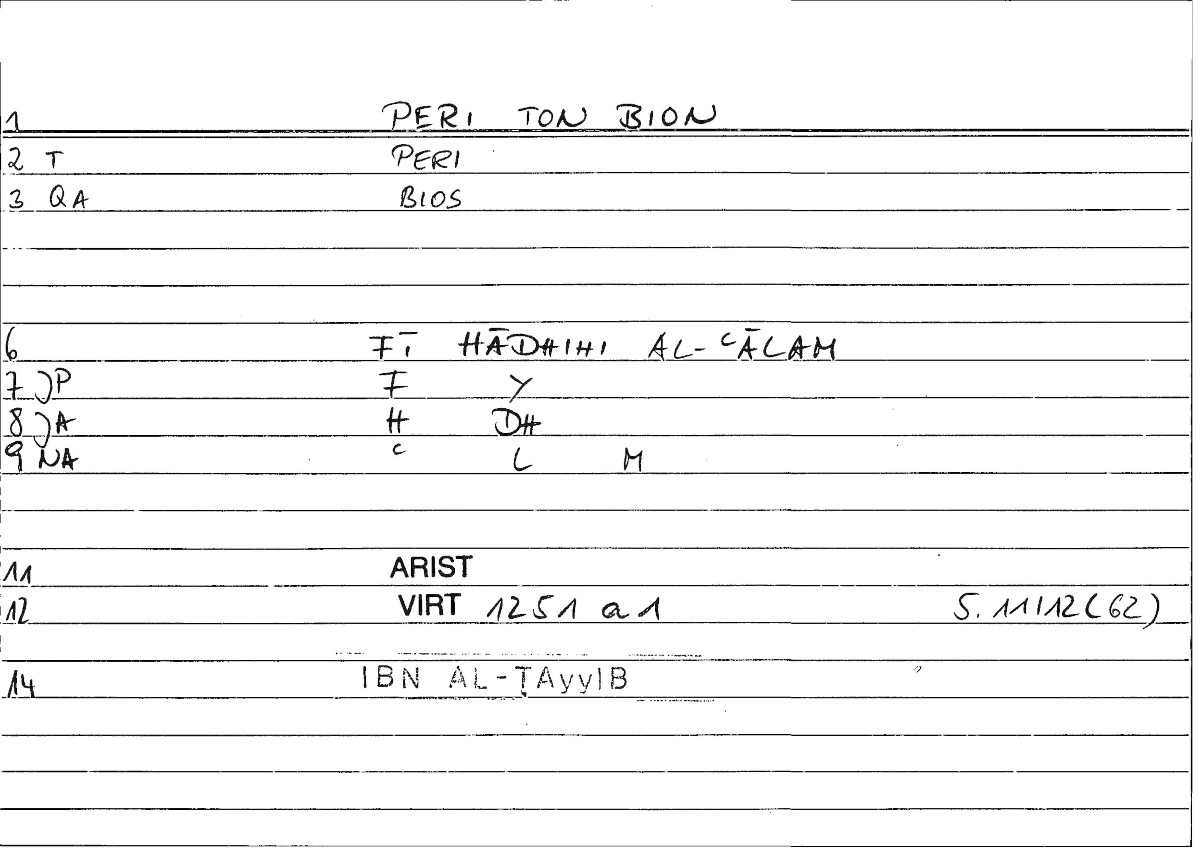 1 PERI TON BION
2 T PERI
3 QA BIOS
6 FĪ HĀDHIHI AL-ᶜĀLAM
7 JP F Y
8 JA H DH
9 NA ᶜ L M
11 ARIST
12 VIRT 1251 a 1 S. 11/12 (62)
14 IBN AL-ṬAyyIB